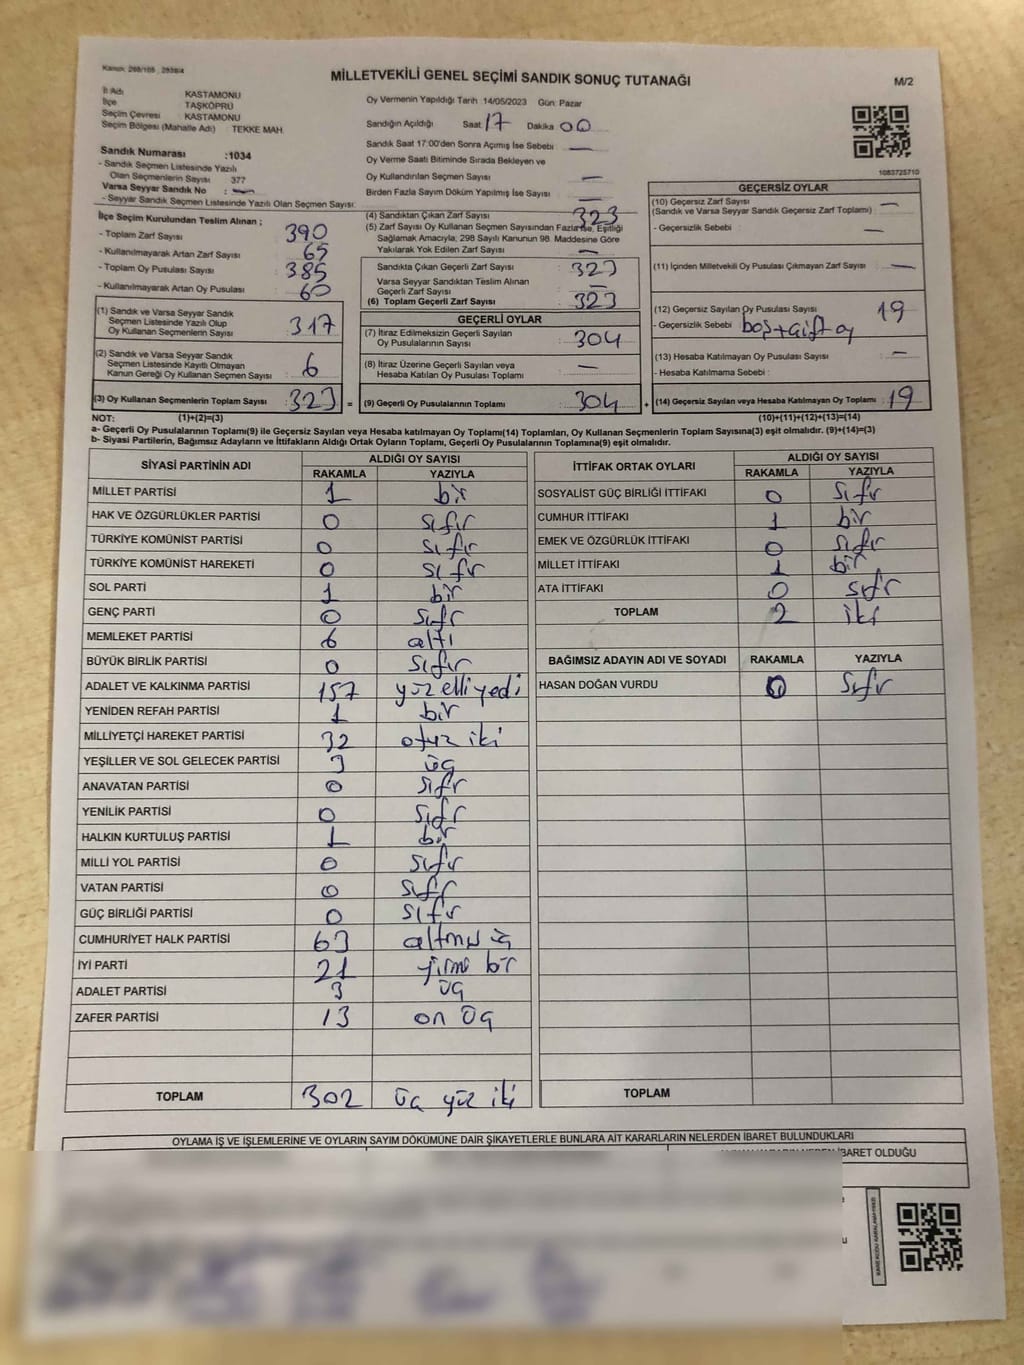 Kanun: 298/105 , 2839/4
MİLLETVEKİLİ GENEL SEÇİMİ SANDIK SONUÇ TUTANAĞI
M/2
İl Adı KASTAMONU
İlçe TAŞKÖPRÜ
Seçim Çevresi KASTAMONU
Seçim Bölgesi (Mahalle Adı) : TEKKE MAH.
Sandık Numarası :1034
- Sandık Seçmen Listesinde Yazılı
Olan Seçmenlerin Sayısı : 377
Varsa Seyyar Sandık No : —
- Seyyar Sandık Seçmen Listesinde Yazılı Olan Seçmen Sayısı:
Oy Vermenin Yapıldığı Tarih 14/05/2023 Gün: Pazar
Sandığın Açıldığı Saat 17 Dakika 00
Sandık Saat 17:00'den Sonra Açımış İse Sebebi : —
Oy Verme Saati Bitiminde Sırada Bekleyen ve
Oy Kullandırılan Seçmen Sayısı : —
Birden Fazla Sayım Döküm Yapılmış İse Sayısı : —
1083725710
İlçe Seçim Kurulundan Teslim Alınan ;
- Toplam Zarf Sayısı : 390
- Kullanılmayarak Artan Zarf Sayısı : 65
- Toplam Oy Pusulası Sayısı : 385
- Kullanılmayarak Artan Oy Pusulası : 60
(1) Sandık ve Varsa Seyyar Sandık
Seçmen Listesinde Yazılı Olup
Oy Kullanan Seçmenlerin Sayısı : 317
(2) Sandık ve Varsa Seyyar Sandık
Seçmen Listesinde Kayıtlı Olmayan
Kanun Gereği Oy Kullanan Seçmen Sayısı : 6
(3) Oy Kullanan Seçmenlerin Toplam Sayısı : 323 =
(4) Sandıktan Çıkan Zarf Sayısı : 323
(5) Zarf Sayısı Oy Kullanan Seçmen Sayısından Fazla İse, Eşitliği
Sağlamak Amacıyla; 298 Sayılı Kanunun 98. Maddesine Göre
Yakılarak Yok Edilen Zarf Sayısı : —
Sandıkta Çıkan Geçerli Zarf Sayısı : 323
Varsa Seyyar Sandıktan Teslim Alınan
Geçerli Zarf Sayısı : —
(6) Toplam Geçerli Zarf Sayısı : 323
GEÇERLİ OYLAR
(7) İtiraz Edilmeksizin Geçerli Sayılan
Oy Pusulalarının Sayısı : 304
(8) İtiraz Üzerine Geçerli Sayılan veya
Hesaba Katılan Oy Pusulası Toplamı : —
(9) Geçerli Oy Pusulalarının Toplamı : 304 +
GEÇERSİZ OYLAR
(10) Geçersiz Zarf Sayısı
(Sandık ve Varsa Seyyar Sandık Geçersiz Zarf Toplamı) : —
- Geçersizlik Sebebi : —
(11) İçinden Milletvekili Oy Pusulası Çıkmayan Zarf Sayısı : —
(12) Geçersiz Sayılan Oy Pusulası Sayısı : 19
- Geçersizlik Sebebi : boş+çift oy
(13) Hesaba Katılmayan Oy Pusulası Sayısı : —
- Hesaba Katılmama Sebebi :
(14) Geçersiz Sayılan veya Hesaba Katılmayan Oy Toplamı : 19
NOT: (1)+(2)=(3) (10)+(11)+(12)+(13)=(14)
a- Geçerli Oy Pusulalarının Toplamı(9) ile Geçersiz Sayılan veya Hesaba Katılmayan Oy Toplamı(14) Toplamları, Oy Kullanan Seçmenlerin Toplam Sayısına(3) eşit olmalıdır. (9)+(14)=(3)
b- Siyasi Partilerin, Bağımsız Adayların ve İttifakların Aldığı Ortak Oyların Toplamı, Geçerli Oy Pusulalarının Toplamına(9) eşit olmalıdır.
SİYASİ PARTİNİN ADI ALDIĞI OY SAYISI
RAKAMLA YAZIYLA
MİLLET PARTİSİ 1 bir
HAK VE ÖZGÜRLÜKLER PARTİSİ 0 sıfır
TÜRKİYE KOMÜNİST PARTİSİ 0 sıfır
TÜRKİYE KOMÜNİST HAREKETİ 0 sıfır
SOL PARTİ 1 bir
GENÇ PARTİ 0 sıfır
MEMLEKET PARTİSİ 6 altı
BÜYÜK BİRLİK PARTİSİ 0 sıfır
ADALET VE KALKINMA PARTİSİ 157 yüz elli yedi
YENİDEN REFAH PARTİSİ 1 bir
MİLLİYETÇİ HAREKET PARTİSİ 32 otuz iki
YEŞİLLER VE SOL GELECEK PARTİSİ 3 üç
ANAVATAN PARTİSİ 0 sıfır
YENİLİK PARTİSİ 0 sıfır
HALKIN KURTULUŞ PARTİSİ 1 bir
MİLLİ YOL PARTİSİ 0 sıfır
VATAN PARTİSİ 0 sıfır
GÜÇ BİRLİĞİ PARTİSİ 0 sıfır
CUMHURİYET HALK PARTİSİ 63 altmış üç
İYİ PARTİ 21 yirmi bir
ADALET PARTİSİ 3 üç
ZAFER PARTİSİ 13 on üç
TOPLAM 302 üç yüz iki
İTTİFAK ORTAK OYLARI ALDIĞI OY SAYISI
RAKAMLA YAZIYLA
SOSYALİST GÜÇ BİRLİĞİ İTTİFAKI 0 sıfır
CUMHUR İTTİFAKI 1 bir
EMEK VE ÖZGÜRLÜK İTTİFAKI 0 sıfır
MİLLET İTTİFAKI 1 bir
ATA İTTİFAKI 0 sıfır
TOPLAM 2 iki
BAĞIMSIZ ADAYIN ADI VE SOYADI RAKAMLA YAZIYLA
HASAN DOĞAN VURDU 0 sıfır
TOPLAM
OYLAMA İŞ VE İŞLEMLERİNE VE OYLARIN SAYIM DÖKÜMÜNE DAİR ŞİKAYETLERLE BUNLARA AİT KARARLARIN NELERDEN İBARET BULUNDUKLARI
İBARET OLDUĞU